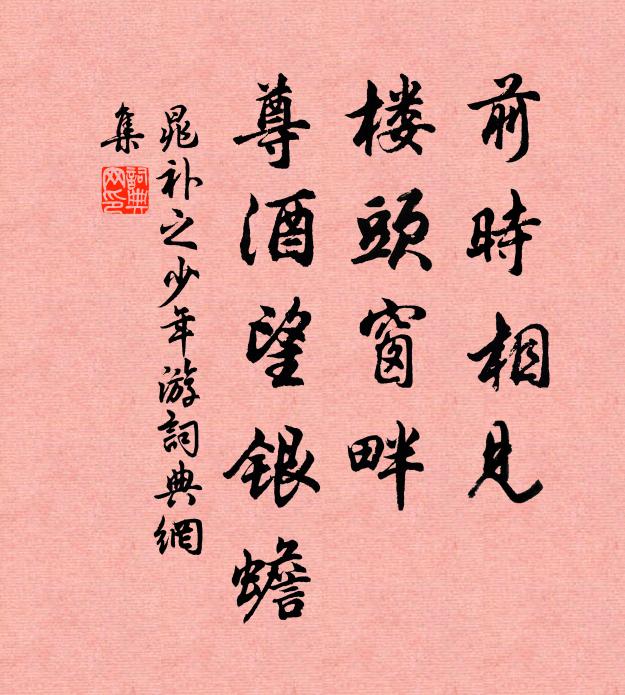 前時相見
楼頭窗畔
尊酒望銀蟾
晁补之少年游詞典網
集
詞典
网印